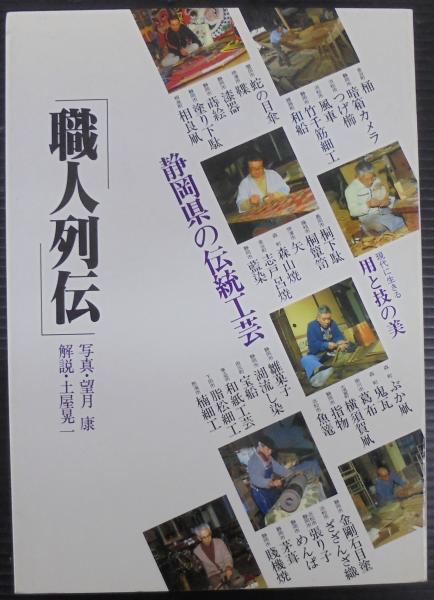 「職人列伝」
写真・望月 康
解説・土屋晃一
静岡県の伝統工芸
現代に生きる
用と技の美
桶
暗箱カメラ
つげ櫛
風車
竹千筋細工
和船
蛇の目傘
鞣
漆器
蒔絵
塗り下駄
相良凧
桐下駄
桐箪笥
矢
森山焼
志戸呂焼
藍染
雛菓子
湖流し染
宝船
和紙工芸
脂松細工
楠細工
ぶか凧
鬼瓦
葛布
横須賀凧
指物
魚籠
金剛石目塗
ざざんざ織
張り子
めんぱ
茅葺
賤機焼